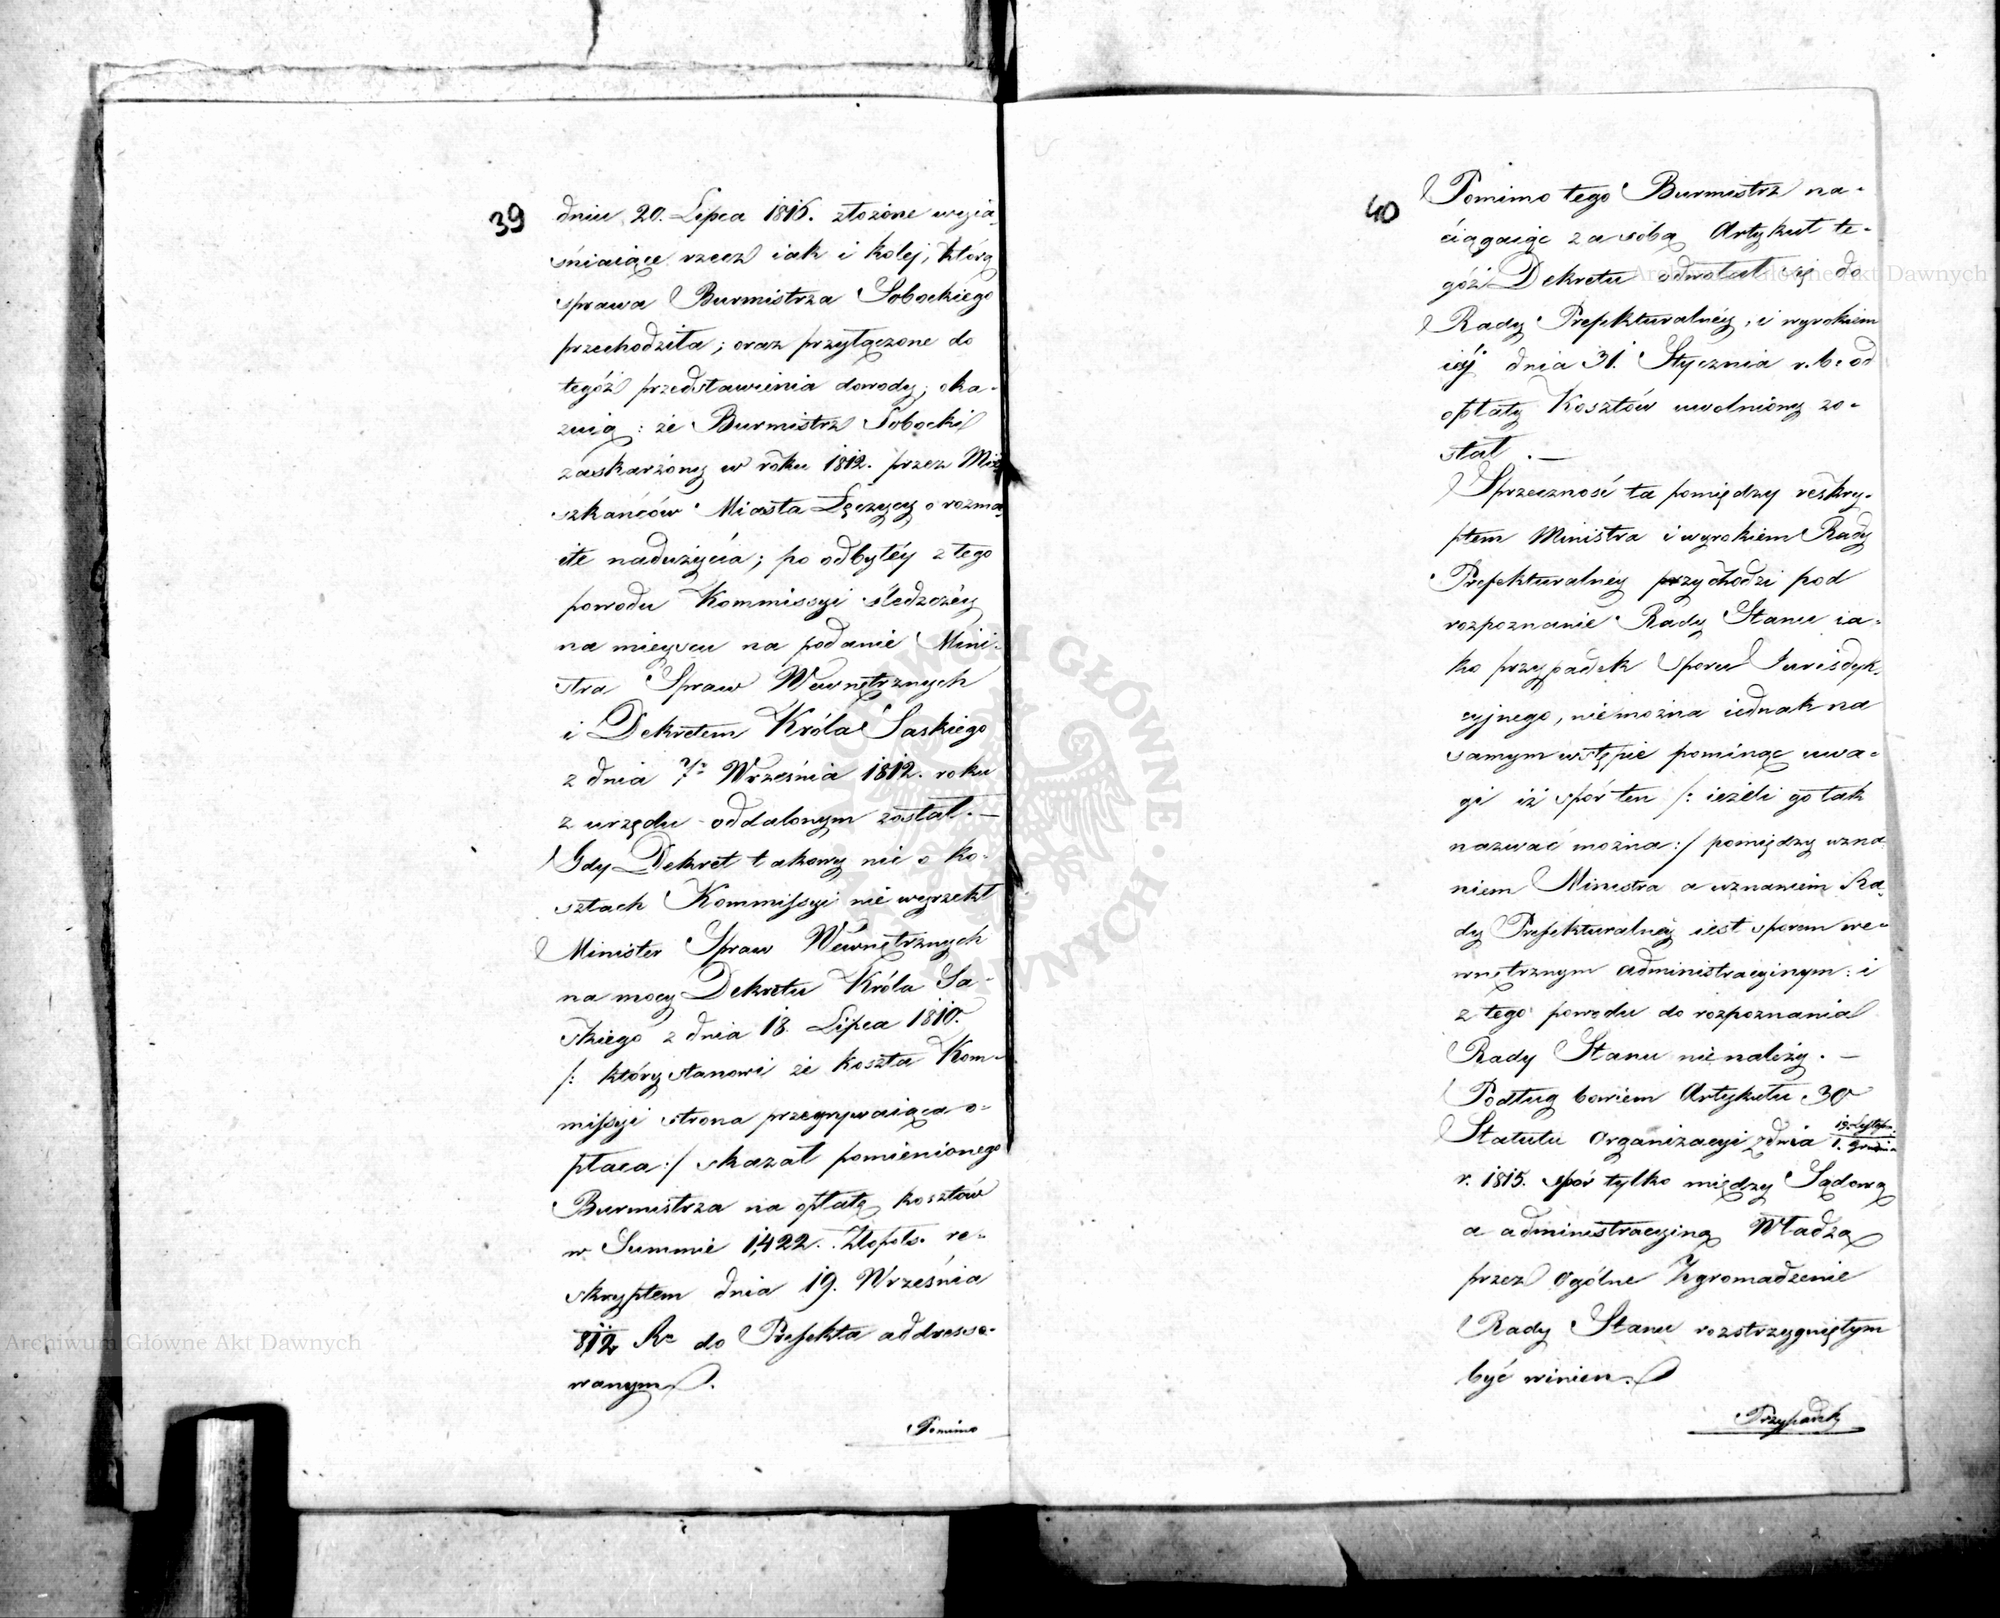 39
dniu 20. Lipca 1816. złożone wyia-
śniaiące rzecz iak i kolej, którą
sprawa Burmistrza Sobockiego
przechodziła; oraz przyłączone do
tegóż przedstawienia dowody, oka-
zuią: że Burmistrz Sobocki
zaskarżony w roku 1812. przez Mie
szkańców Miasta Łęczycy o rozma-
ite nadużycia; po odbytéy z tego
powodu Kommissyi śledczéy
na mieyscu na podanie Mini-
stra Spraw Wewnętrznych
i Dekretem Króla Saskiego
z dnia 7º Września 1812. roku
z urzędu oddalonym został. —
Gdy Dekret takowy nic o ko-
sztach Kommissyi nie wyrzekł
Minister Spraw Wewnętrznych
na mocy Dekretu Króla Sa-
skiego z dnia 18. Lipca 1810.
/: który stanowi że koszta Kom-
missyi strona przegrywaiąca o-
płaca :/ skazał pomienionego
Burmistrza na opłatę kosztów
w Summie 1,422. Złopols. re-
skryptem dnia 19. Września
1812 Rº do Prefekta addresso-
wanym.
Pomimo
40
Pomimo tego Burmistrz na-
ciągaiąc za sobą Artykuł te-
góż Dekretu odwołał się do
Rady Prefekturalnéy, i wyrokiem
iéy dnia 31. Stycznia r. b. od
opłaty Kosztów uwolniony zo-
stał. —
Sprzeczność ta pomiędzy reskry-
ptem Ministra i wyrokiem Rady
Prefekturalnéy przychodzi pod
rozpoznanie Rady Stanu ia-
ko przypadek sporu Jurisdyk-
cyjnego, nie można iednak na
samym wstępie pominąć uwa-
gi iż spór ten /: ieżeli go tak
nazwać można :/ pomiędzy uzna
niem Ministra a uznaniem Ra-
dy Prefekturalnéy iest sporem we-
wnętrznym administracyinym: i
z tego powodu do rozpoznania
Rady Stanu nie należy. —
Podług bowiem Artykułu 30
Statutu Organizacyi z dnia 19. Listop. / 1. Grudnia
r. 1815. spór tylko między Sądową
a administracyiną Władzą
przez Ogólne Zgromadzenie
Rady Stanu rozstrzygniętym
być winien.
Przypadek
Archiwum Główne Akt Dawnych
Archiwum Główne Akt Dawnych